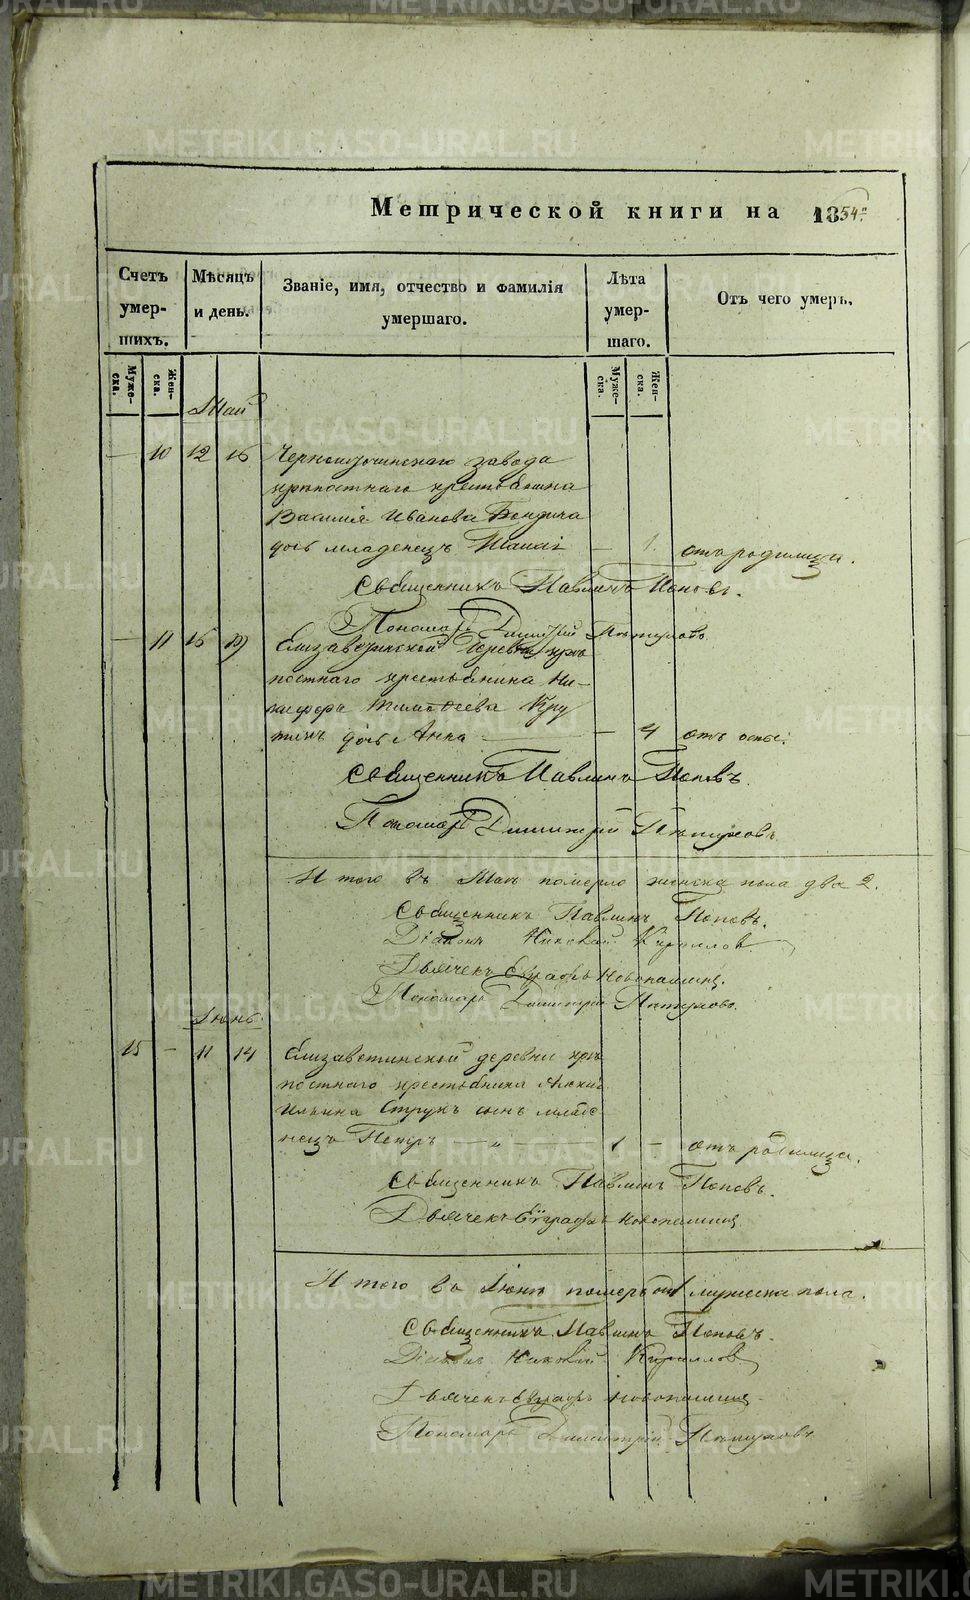 Метрической книги на 1854й
Счетъ умер-шихъ.
Мѣсяцъ и день.
Званіе, имя, отчество и фамилія умершаго.
Лѣта умер-шаго.
Отъ чего умеръ.
Муже-ска.
Жен-ска.
Муже-ска.
Жен-ска.
Май
— 10 12 16 Черноисточинскаго завода
крѣпостнаго крестьянина
Василія Иванова
дочь младенецъ — 1. отъ родимца.
Священникъ Павлинъ Поповъ.
Пономарь Димитрій Пѣтуховъ
— 11 16 19 Елизаветинской деревни крѣ
постнаго крестьянина Ни-
кифора Тимофеева Кру
тихъ дочь Анна — — 4 отъ оспы.
Священникъ Павлинъ Поповъ.
Пономарь Димитрій Пѣтуховъ
Итого въ Маѣ померло женска пола два 2.
Священникъ Павлинъ Поповъ.
Діаконъ Николай Кирилловъ
Дьячекъ Евграфъ Новопашинъ.
Пономарь Димитрій Пѣтуховъ.
Іюнь.
15 — 11 14 Елизаветинской деревни крѣ
постнаго крестьянина
Ильина сынъ младе
нецъ Петръ — „ — 1 — отъ родимца.
Священникъ Павлинъ Поповъ.
Дьячекъ Евграфъ Новопашинъ
Итого въ Іюнѣ померъ 1 мужеска пола.
Священникъ Павлинъ Поповъ.
Діаконъ Николай Кирилловъ
Дьячекъ Евграфъ Новопашинъ
Пономарь Димитрій Пѣтуховъ
METRIKI.GASO-URAL.RU